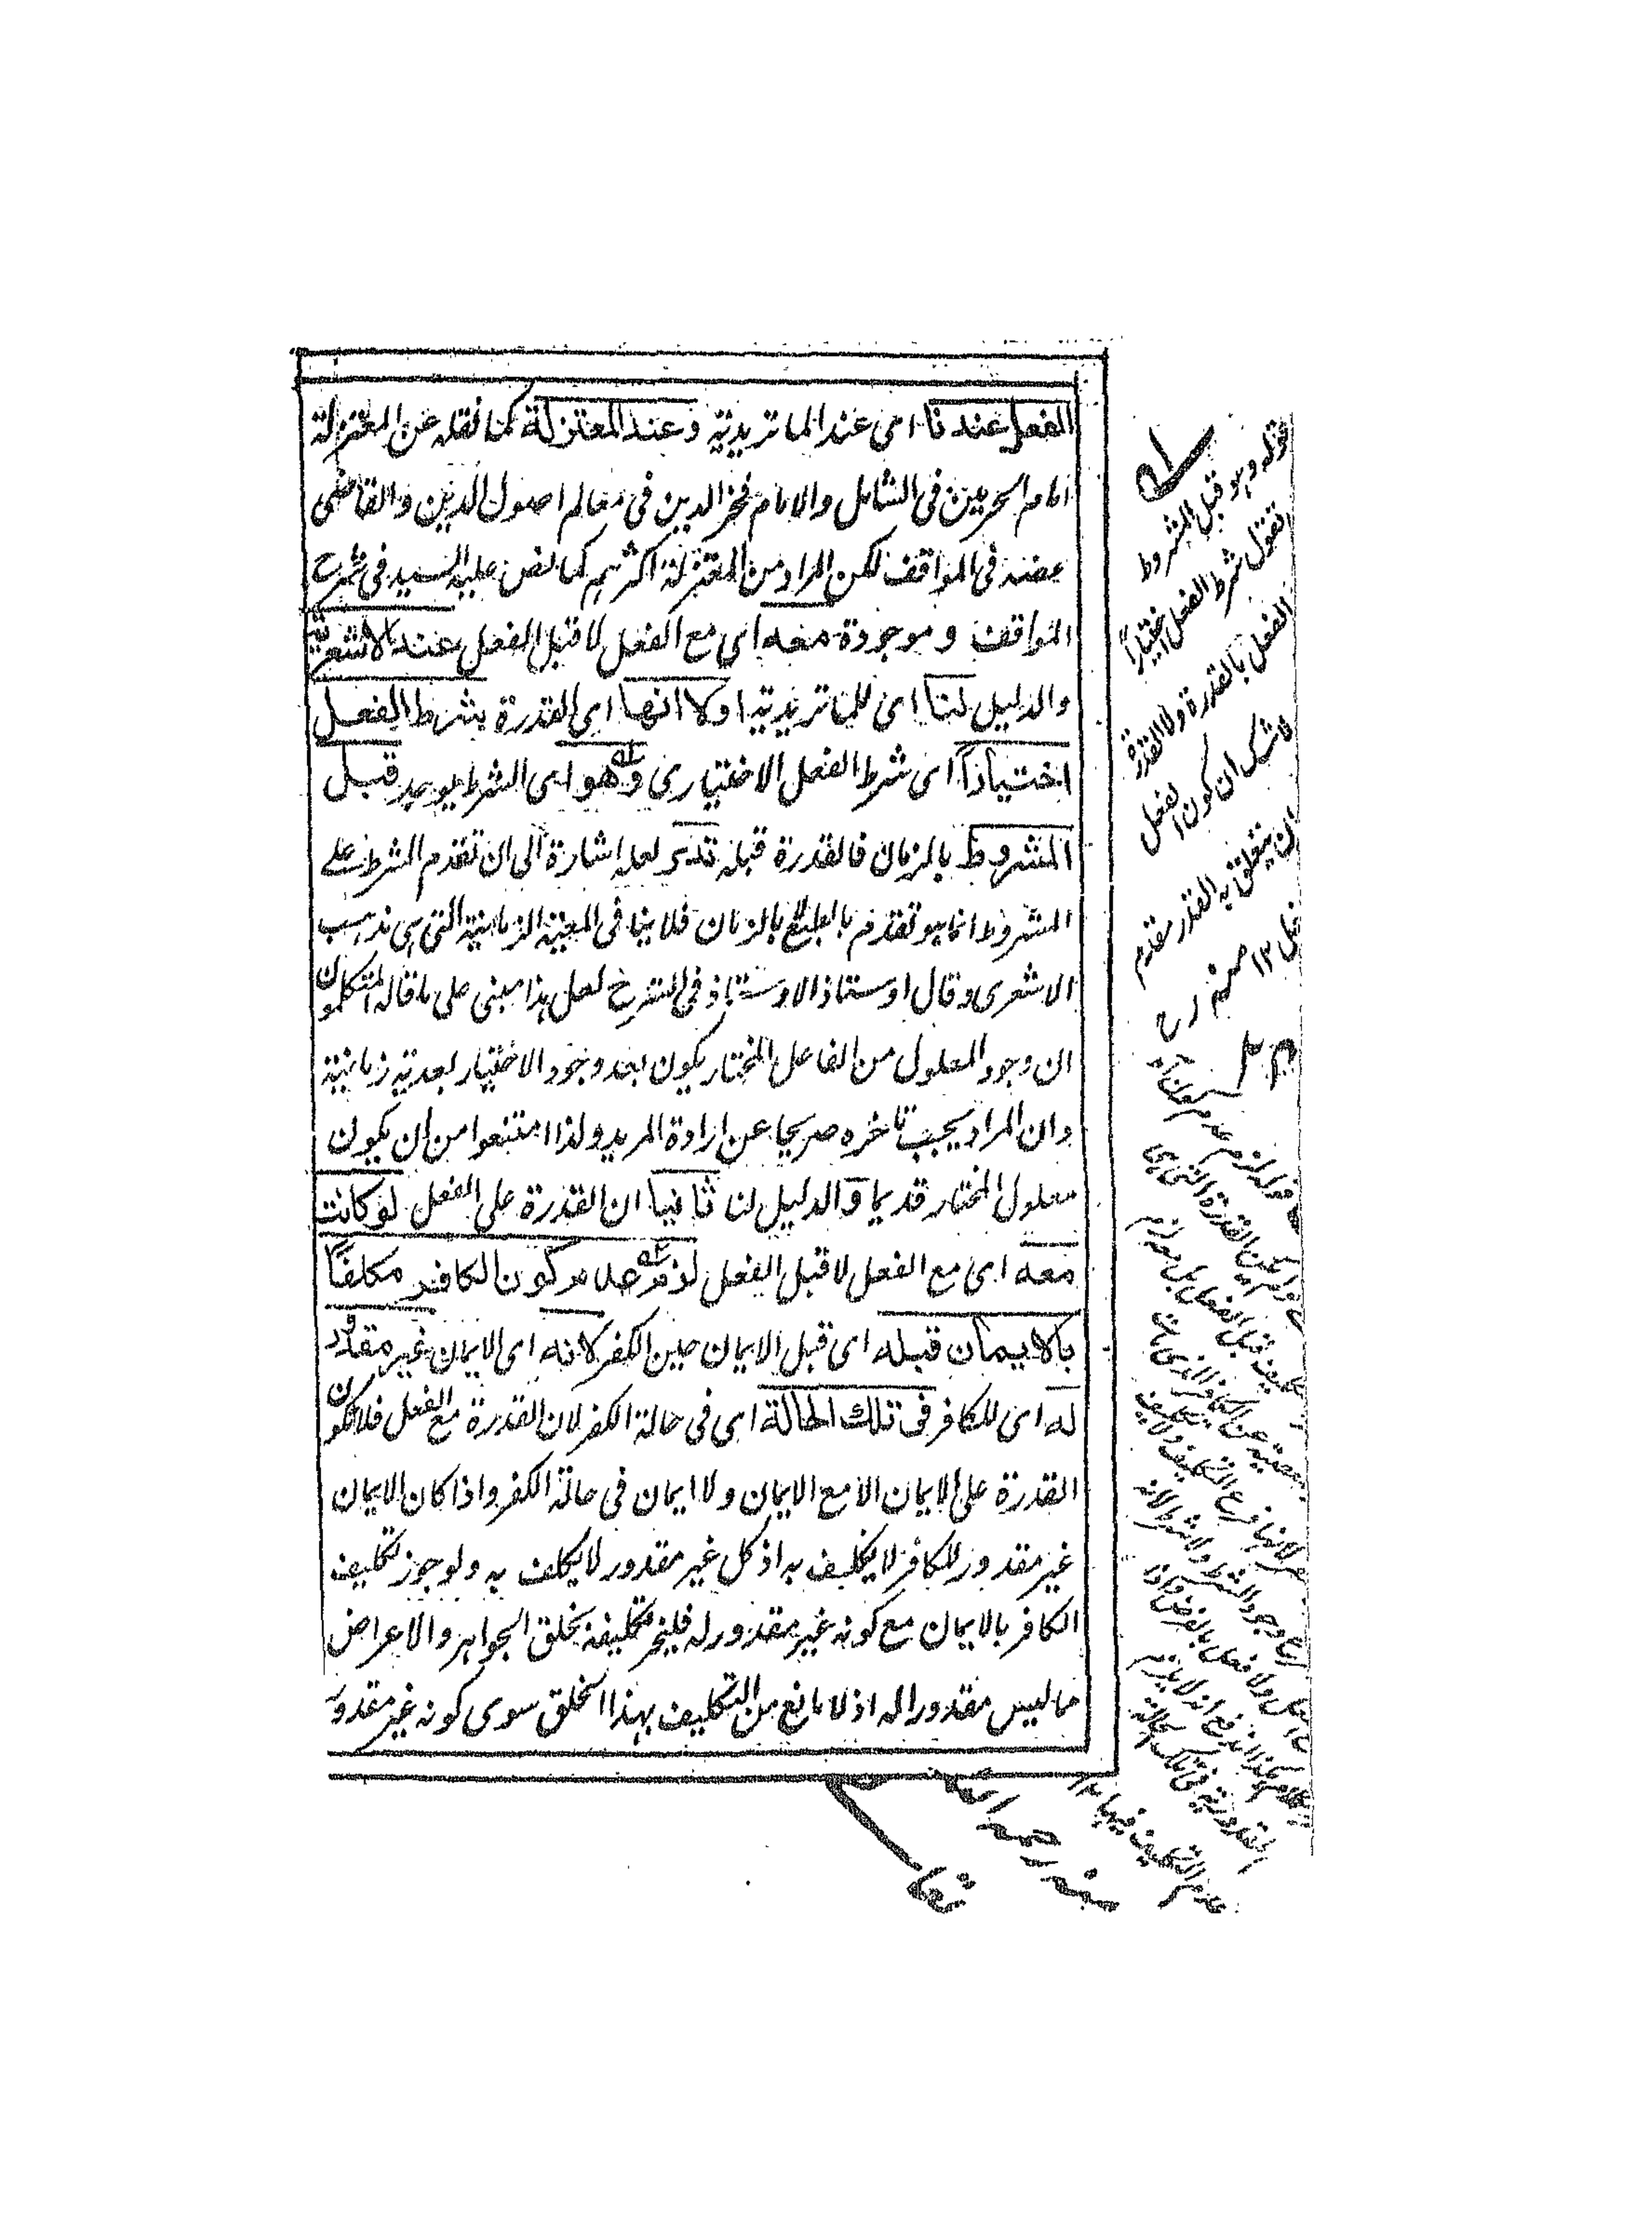 الفعل عندنا اى عند الماتريدية وعند المعتزلة كما نقله عن المعتزلة
امام الحرمين فى الشامل والامام فخر الدين فى معالم اصول الدين والقاضى
عضد فى المواقف لكن المراد من المعتزلة اكثرهم كما نص عليه السيد فى شرح
المواقف و موجودة معه اى مع الفعل لا قبل الفعل عند الاشعرية
والدليل لنا اى للماتريدية اولا انها اى القدرة شرط الفعل
اختيارا اى شرط الفعل الاختيارى وهو اى الشرط يوجد قبل
المشروط بالزمان فالقدرة قبله تدبر لعله اشارة الى ان تقدم الشرط على
المشروط انما هو تقدم بالطبع لا بالزمان فلا ينافى المعية الزمانية التى هى مذهب
الاشعرى وقال اوستاذ الاوستاذ فى الشرح لعل هذا مبنى على ما قاله المتكلمون
ان وجود المعلول من الفاعل المختار يكون بعد وجود الاختيار بعدية زمانية
وان المراد يجب تاخره صريحا عن ارادة المريد ولذا امتنعوا من ان يكون
معلول المختار قديما والدليل لنا ثانيا ان القدرة على الفعل لو كانت
معه اى مع الفعل لا قبل الفعل لزم عدم كون الكافر مكلفا
بالايمان قبله اى قبل الايمان حين الكفر لانه اى الايمان غير مقدور
له اى للكافر فى تلك الحالة اى فى حالة الكفر لان القدرة مع الفعل فلا تكون
القدرة على الايمان الا مع الايمان ولا ايمان فى حالة الكفر واذا كان الايمان
غير مقدور للكافر لا يكلف به اذ كل غير مقدور لا يكلف به ولو جوز تكليف
الكافر بالايمان مع كونه غير مقدور له فليجز تكليفه بخلق الجواهر والاعراض
مما ليس مقدورا له اذ لا مانع من التكليف بهذا الخلق سوى كونه غير مقدور
قوله وهو قبل المشروط
نقول شرط الفعل اختيارا
الفعل بالقدرة ولا القدرة
فاشك ان كون الفعل
ان يتعلق به القدر مقدم